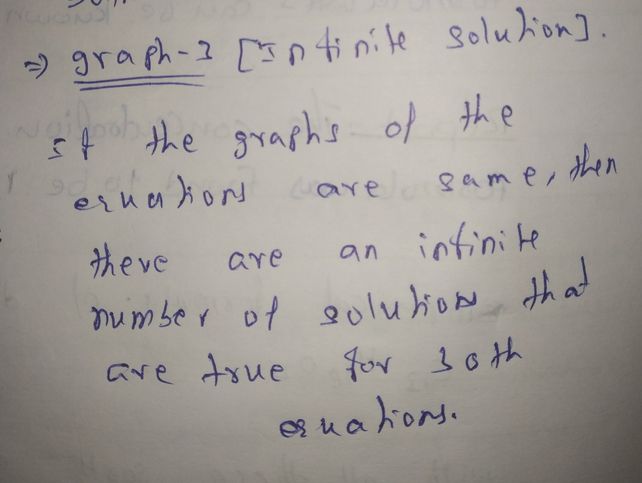 ⇒ graph-3 [Infinite solution].
If the graphs of the
equations are same, then
there are an infinite
number of solution that
are true for both
equations.